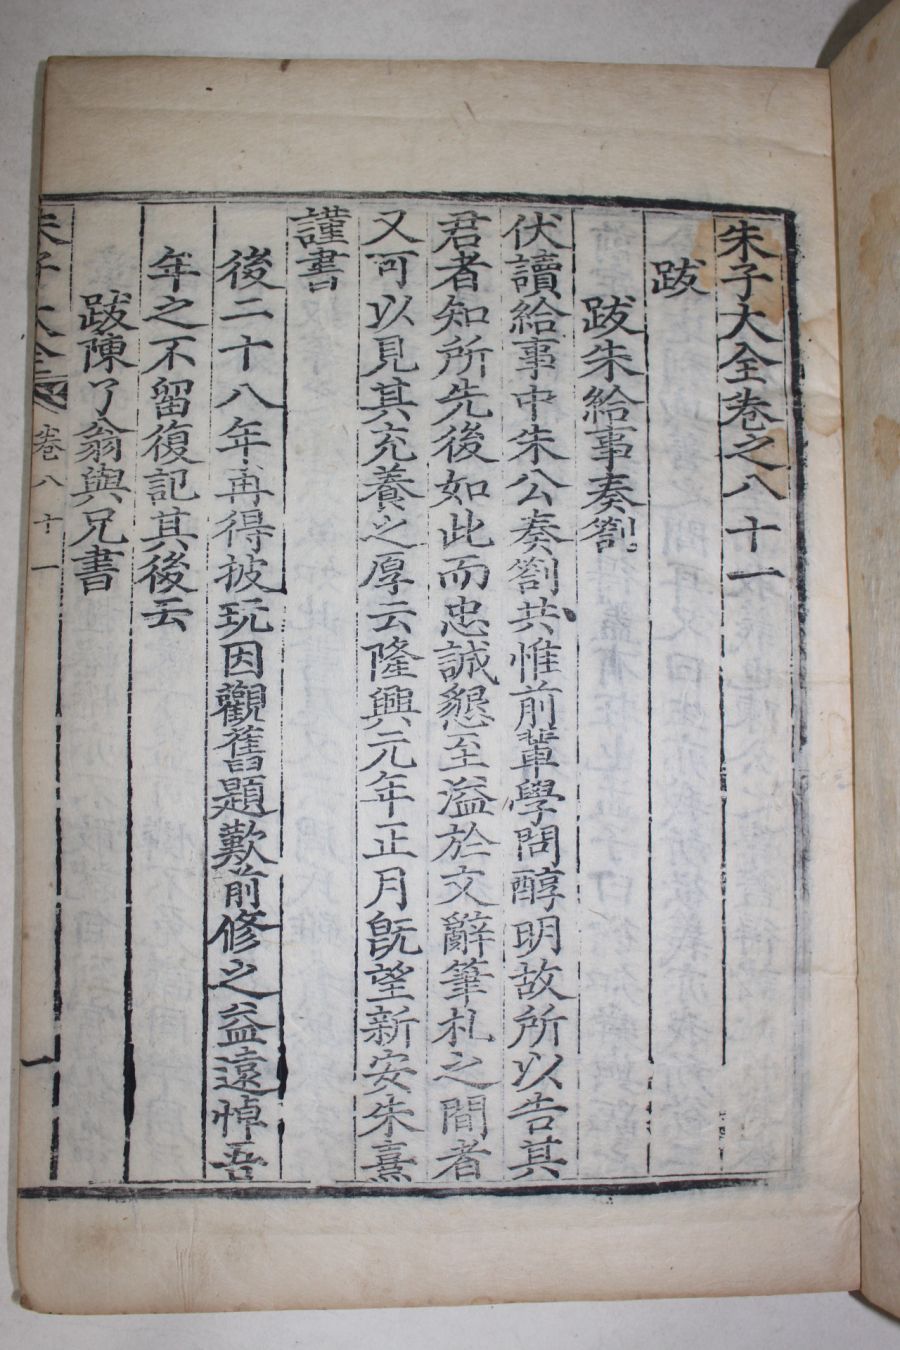 朱子大全卷之八十一
跋
跋朱給事奏劄
伏讀給事中朱公奏劄共惟前輩學問醇明故所以告其
君者知所先後如此而忠誠懇至溢於文辭筆札之間者
又可以見其充養之厚云隆興元年正月旣望新安朱熹
謹書
後二十八年再得披玩因觀舊題歎前修之益遠悼吾
年之不留復記其後云
跋陳了翁與兄書
朱子大全 卷八十一 一